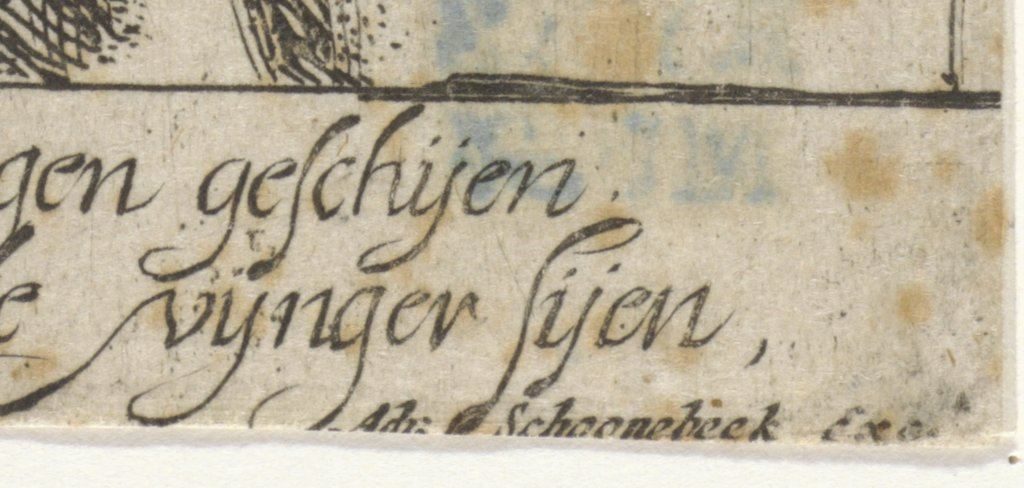 gen geschijen.
vijnger sijen,
Adr. Schoonebeek Exc.